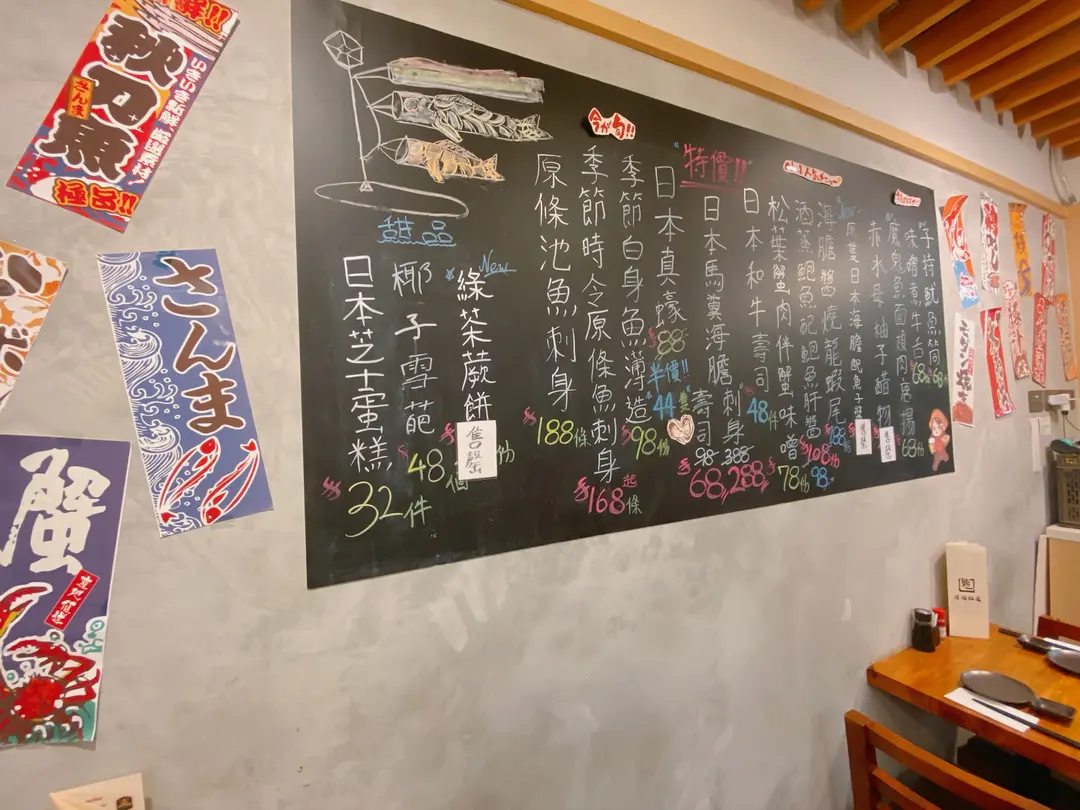 新鮮!!
秋刀魚
さんま
いきいき新鮮、
極旨!!
さんま
蟹
今が旬!!
"特價!!"
人気メニュー
子持魷魚筒
68份
味噌煮牛舌
88份
魔鬼魚面頰肉唐揚
68份
赤水母柚子醋物
售罄
原隻日本海膽
售罄
海膽醬燒龍蝦尾
$108份
酒蒸鮑魚配鮑魚肝醬
98
松葉蟹肉伴蟹味噌
78份
日本和牛壽司
48件
日本馬糞海膽
刺身
388
288
壽司
98
68
日本真蠔
$88
半價!!
44
季節白身魚薄造
$98份
季節時令原條魚刺身
$168起條
原條池魚刺身
$188條
甜品
New
綠茶蕨餅
售罄
份
椰子雪葩
48/個
日本芝士蛋糕
$32件